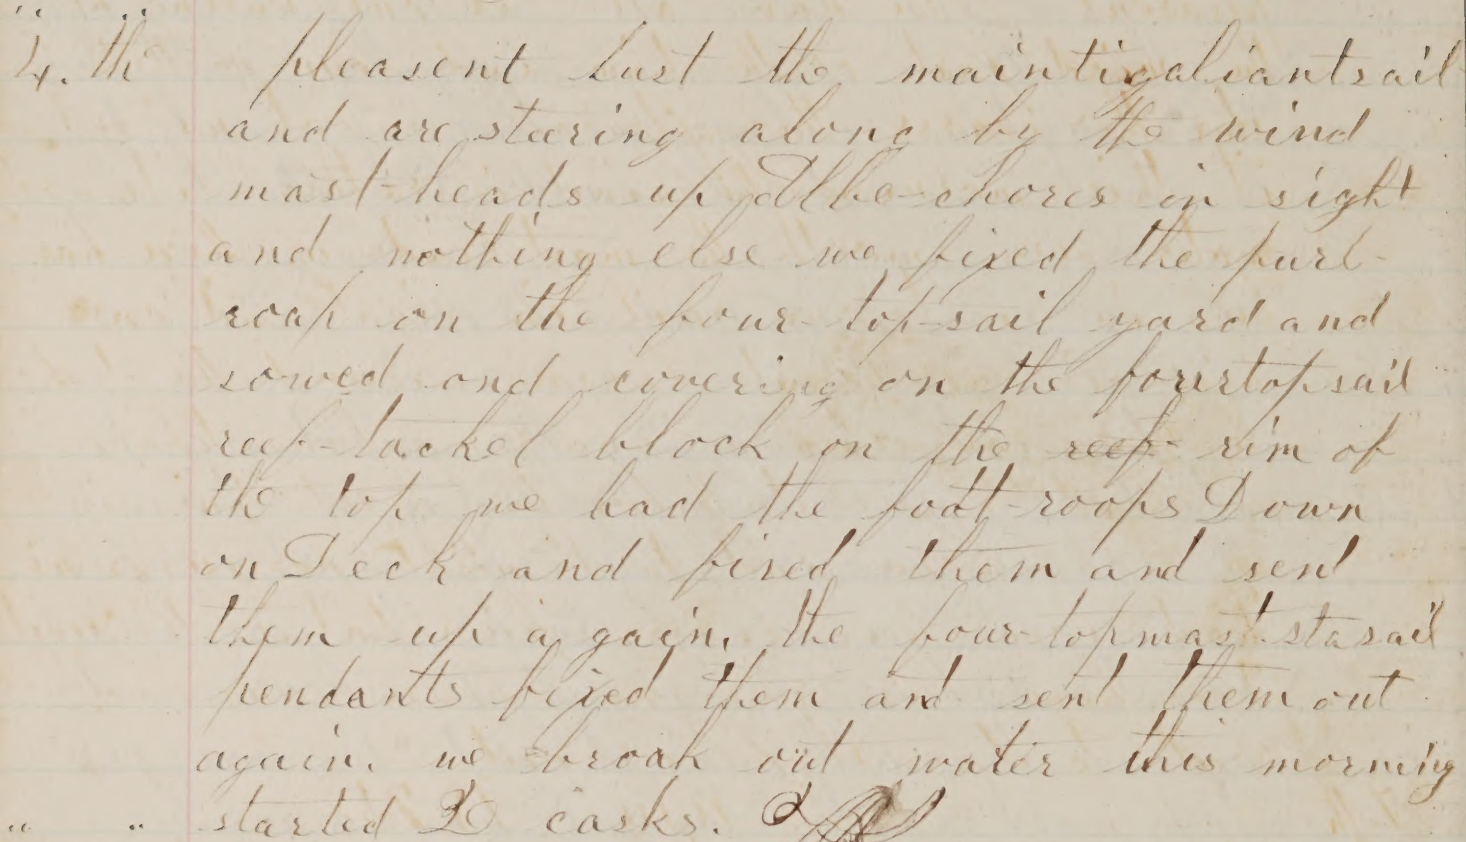 " "
4. th pleasent lust the maintigaliantsail
and are steering along by the wind
mast-heads up Albe-chores in sight
and nothing else we fixed the furl-
roap on the four-top-sail yard and
sowed and covering on the fourtopsail
reef-tackel block on the reef- rim of
the top we had the foot-roops Down
on Deck and fixed them and sent
them up a gain. the four-topmast stasail
pendants fixed them and sent them out
again. we broak out water this morning
" " started 2 casks.